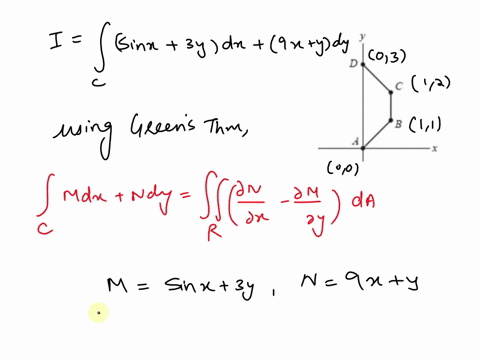 I = ∫_C (sinx + 3y) dx + (9x+y) dy
y
D (0,3)
C (1,2)
B (1,1)
A x
(0,0)
using Green's Thm,
∫_C Mdx + Ndy = ∬_R (∂N/∂x - ∂M/∂y) dA
M = sinx + 3y , N = 9x + y